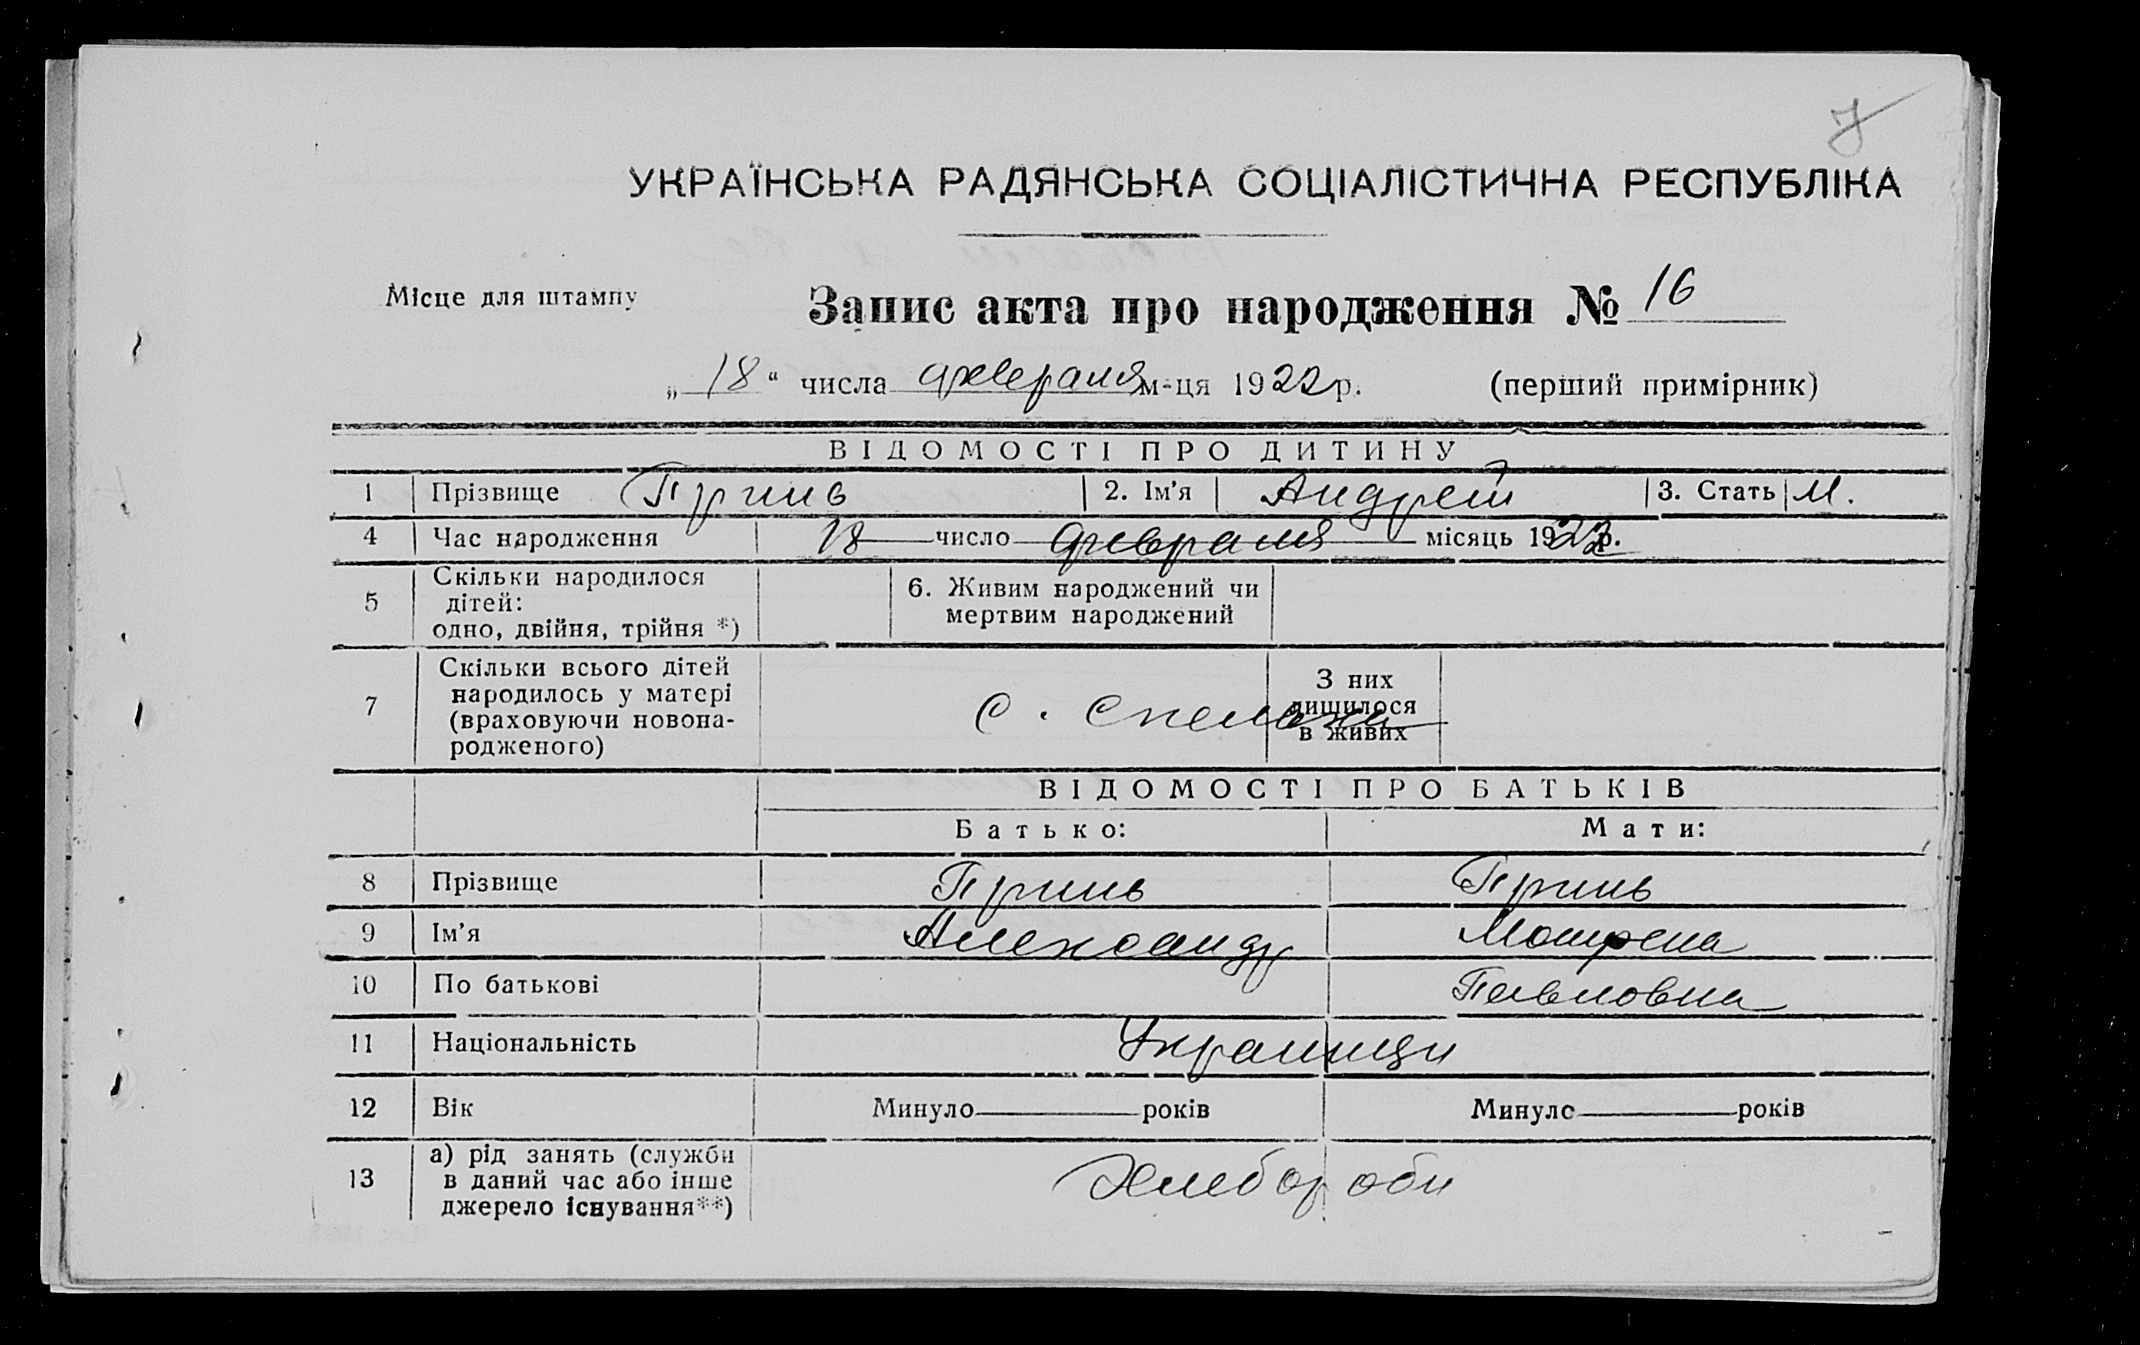 7
УКРАЇНСЬКА РАДЯНСЬКА СОЦІАЛІСТИЧНА РЕСПУБЛІКА
Місце для штампу
Запис акта про народження № 16
„ 18 “ числа февраля м-ця 1922 р. (перший примірник)
ВІДОМОСТІ ПРО ДИТИНУ
1 Прізвище Гринь 2. Ім’я Андрей 3. Стать М.
4 Час народження 18 число февраля місяць 1922 р.
5 Скільки народилося
дітей:
одно, двійня, трійня *)
6. Живим народжений чи
мертвим народжений
7 Скільки всього дітей
народилось у матері
(враховуючи новона-
родженого)
с.
З них
лишилося
в живих
ВІДОМОСТІ ПРО БАТЬКІВ
Батько: Мати:
8 Прізвище Гринь Гринь
9 Ім’я Александр Мотрена
10 По батькові Павловна
11 Національність Украинци
12 Вік Минуло років Минуло років
13 а) рід занять (служби
в даний час або інше
джерело існування**)
Хлебороби